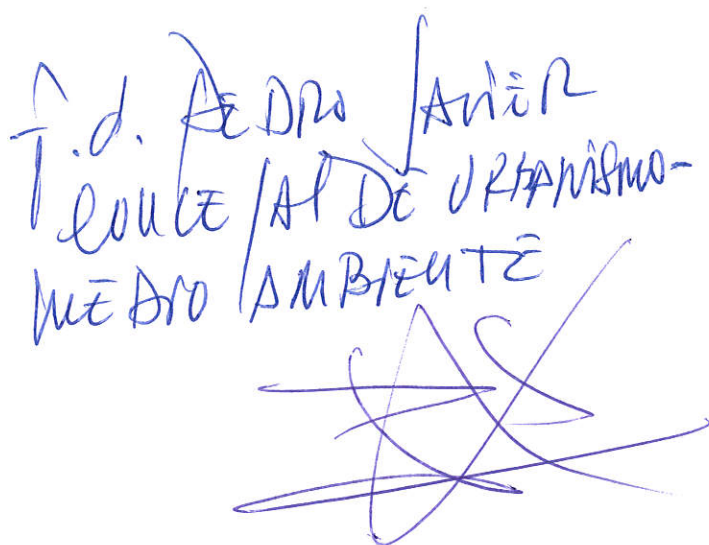 f.d. PEDRO JAVIER
CONCEJAl DE URBANISMO-
MEDIO AMBIENTE